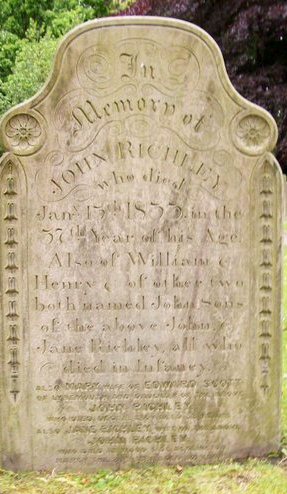 In
Memory of
JOHN RICHLEY
who died
Jany. 15th 1833, in the
57th Year of his Age.
Also of William &
Henry & of other two
both named John Sons
of the above John, &
Jane Richley, all who
died in Infancy.
ALSO MARY, WIFE OF EDWARD SCOTT
JOHN RICHLEY
WHO DIED
ALSO JANE RICHLEY, WIFE OF THE ABOVE
JOHN RICHLEY
WHO DIED